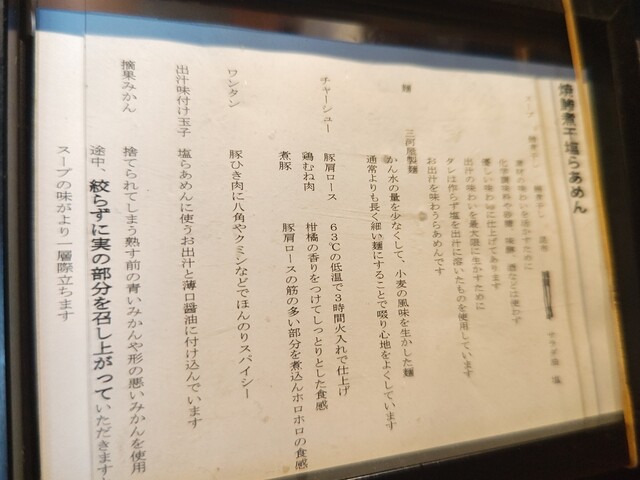 焼鯵煮干塩らあめん
スープ
素材の味わいを活かすために
化学調味料や砂糖、味醂、酒などは使わず
優しい味わいに仕上げてあります
出汁の味わいを最大限に生かすために
タレは作らず塩を出汁に溶いたものを使用しています
お出汁を味わうらあめんです
麺 三河屋製麺
かん水の量を少なくして、小麦の風味を生かした麺
通常よりも長く細い麺にすることで啜り心地をよくしています
チャーシュー 豚肩ロース 63℃の低温で3時間火入れで仕上げ
鶏むね肉 柑橘の香りをつけてしっとりとした食感
煮豚 豚肩ロースの筋の多い部分を煮込んホロホロの食感
ワンタン 豚ひき肉に八角やクミンなどでほんのりスパイシー
出汁味付け玉子 塩らあめんに使うお出汁と薄口醤油に付け込んでいます
摘果みかん 捨てられてしまう熟す前の青いみかんや形の悪いみかんを使用
途中、絞らずに実の部分を召し上がっていただきます
スープの味がより一層際立ちます